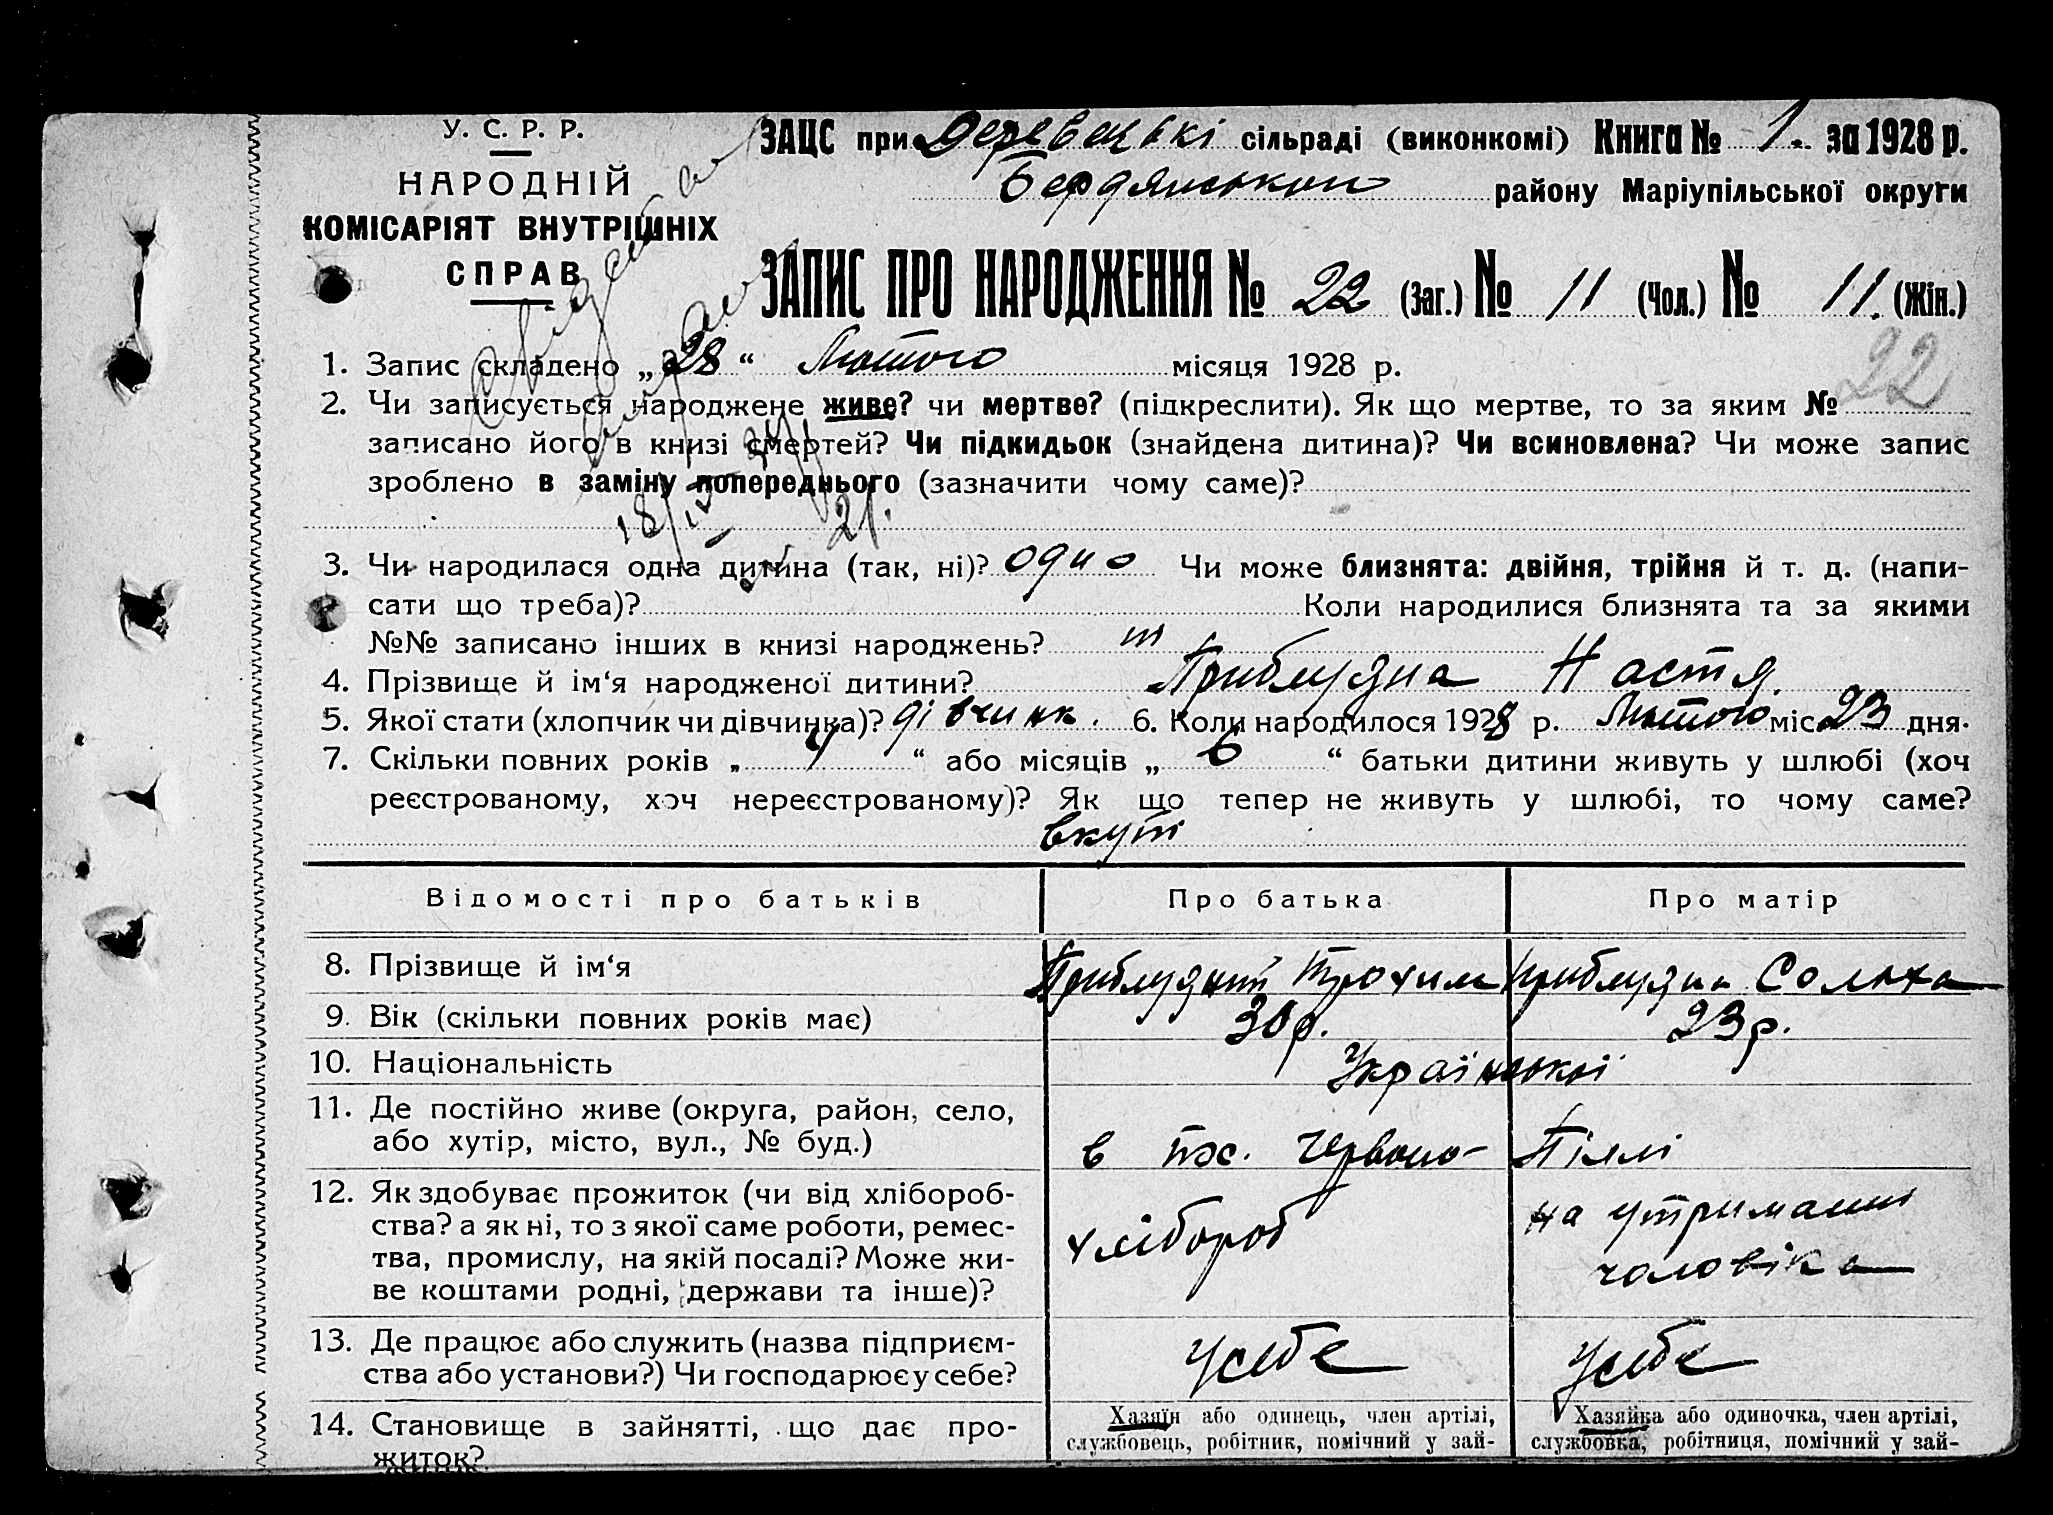 У. С. Р. Р.
НАРОДНІЙ
КОМІСАРІЯТ ВНУТРІШНІХ
СПРАВ
ЗАЦС при Деревецькі сільраді (виконкомі) Книга № 1. за 1928 р.
Бердянського району Маріупільської округи
ЗАПИС ПРО НАРОДЖЕННЯ № 22 (Заг.) № 11 (Чол.) № 11. (Жін.)
22
1. Запис складено „28“ Лютого місяця 1928 р.
2. Чи записується народжене живе? чи мертве? (підкреслити). Як що мертве, то за яким №
записано його в книзі смертей? Чи підкидьок (знайдена дитина)? Чи всиновлена? Чи може запис
зроблено в заміну попереднього (зазначити чому саме)?
3. Чи народилася одна дитина (так, ні)? одно Чи може близнята: двійня, трійня й т. д. (напи-
сати що треба)? Коли народилися близнята та за якими
№№ записано інших в книзі народжень?
4. Прізвище й ім‘я народженої дитини? Приблудна Настя.
5. Якої стати (хлопчик чи дівчинка)? дівчинк. 6. Коли народилося 1928 р. Лютого міс. 23 дня.
7. Скільки повних років „ 4 “ або місяців „ 6 “ батьки дитини живуть у шлюбі (хоч
реєстрованому, хоч нереєстрованому)? Як що тепер не живуть у шлюбі, то чому саме?
вкупі
Відомості про батьків Про батька Про матір
8. Прізвище й ім‘я Приблудний Трохим Приблудна Солоха
9. Вік (скільки повних років має) 30 р. 23 р.
10. Національність Української
11. Де постійно живе (округа, район, село,
або хутір, місто, вул., № буд.) в пос. Червоно-Піллі
12. Як здобуває прожиток (чи від хлібороб-
ства? а як ні, то з якої саме роботи, ремес-
тва, промислу, на якій посаді? Може жи-
ве коштами родні, держави та інше)?
хлібороб на утриманні
чоловіка
13. Де працює або служить (назва підприєм-
ства або установи?) Чи господарює у себе?
Усебе Усебе
14. Становище в зайнятті, що дає про-
житок?
Хазяїн або одинець, член артілі,
службовець, робітник, помічний у зай-
Хазяйка або одиночка, член артілі,
службовка, робітниця, помічний у зай-